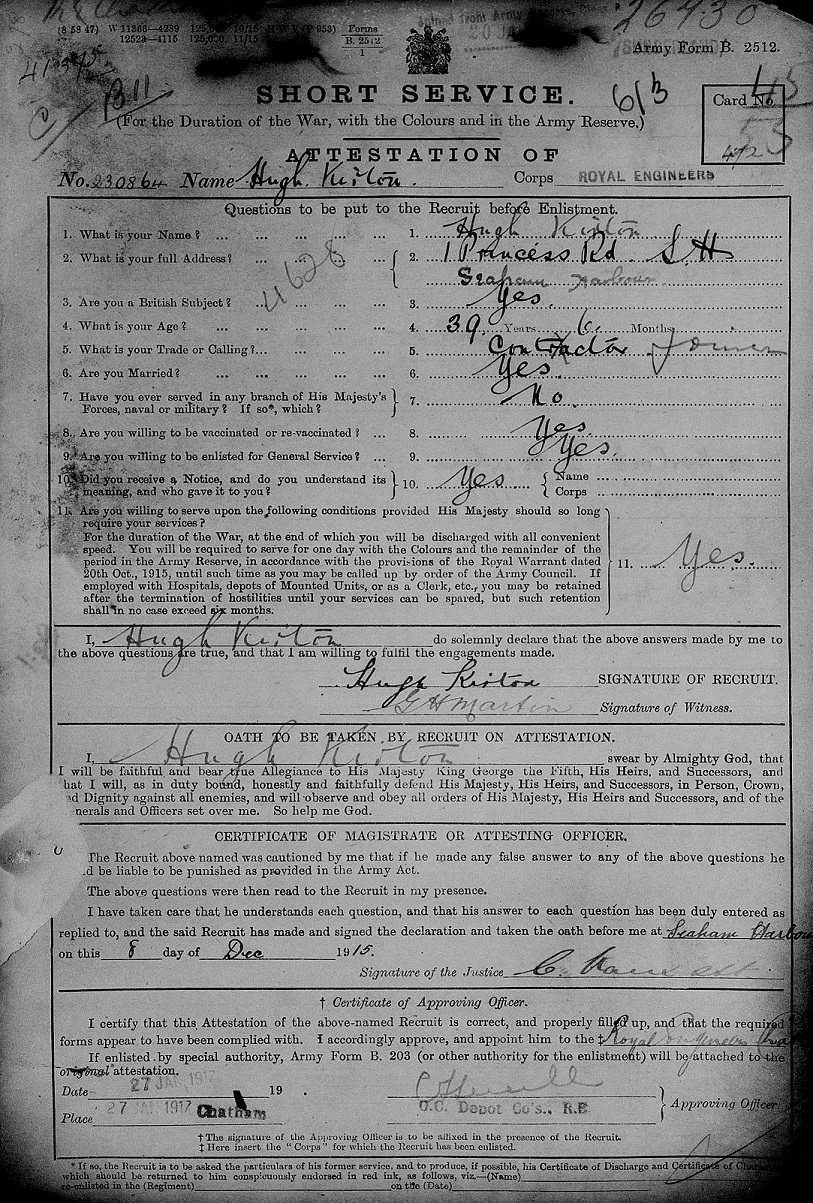 (8 58 47) W 11366—4289 125,000 10/15 H W V (P 953) Forms
12523—4115 125,000 11/15 B. 2512
1
Joined from Army Reserve,
20 JAN
26430
Army Form B. 2512.
B11
SHORT SERVICE. 613
(For the Duration of the War, with the Colours and in the Army Reserve.)
Card No.
ATTESTATION OF
No. 230864 Name Hugh Kirton. Corps ROYAL ENGINEERS
Questions to be put to the Recruit before Enlistment.
1. What is your Name? ... ... ... ... 1. Hugh Kirton
2. What is your full Address? ... ... ... 2. 1 Princess Rd S. H
Seaham Harbour
4628
3. Are you a British Subject? ... ... ... 3. Yes.
4. What is your Age? ... ... ... ... 4. 39 Years 6 Months
5. What is your Trade or Calling?... ... ... ... 5. Contractor Joiner
6. Are you Married? ... ... ... ... 6. Yes.
7. Have you ever served in any branch of His Majesty's
Forces, naval or military? If so*, which? 7. No.
8. Are you willing to be vaccinated or re-vaccinated? ... 8. Yes
9. Are you willing to be enlisted for General Service? ... 9. Yes.
10. Did you receive a Notice, and do you understand its
meaning, and who gave it to you? 10. Yes Name ...
Corps ...
11. Are you willing to serve upon the following conditions provided His Majesty should so long
require your services?
For the duration of the War, at the end of which you will be discharged with all convenient
speed. You will be required to serve for one day with the Colours and the remainder of the
period in the Army Reserve, in accordance with the provisions of the Royal Warrant dated
20th Oct., 1915, until such time as you may be called up by order of the Army Council. If
employed with Hospitals, depots of Mounted Units, or as a Clerk, etc., you may be retained
after the termination of hostilities until your services can be spared, but such retention
shall in no case exceed six months.
11. Yes.
I, Hugh Kirton do solemnly declare that the above answers made by me to
the above questions are true, and that I am willing to fulfil the engagements made.
Hugh Kirton SIGNATURE OF RECRUIT.
G H Martin Signature of Witness.
OATH TO BE TAKEN BY RECRUIT ON ATTESTATION.
I, Hugh Kirton swear by Almighty God, that
I will be faithful and bear true Allegiance to His Majesty King George the Fifth, His Heirs, and Successors, and
hat I will, as in duty bound, honestly and faithfully defend His Majesty, His Heirs, and Successors, in Person, Crown,
d Dignity against all enemies, and will observe and obey all orders of His Majesty, His Heirs and Successors, and of the
nerals and Officers set over me. So help me God.
CERTIFICATE OF MAGISTRATE OR ATTESTING OFFICER.
The Recruit above named was cautioned by me that if he made any false answer to any of the above questions he
d be liable to be punished as provided in the Army Act.
The above questions were then read to the Recruit in my presence.
I have taken care that he understands each question, and that his answer to each question has been duly entered as
replied to, and the said Recruit has made and signed the declaration and taken the oath before me at Seaham Harbour
on this 8 day of Dec 1915.
Signature of the Justice
† Certificate of Approving Officer.
I certify that this Attestation of the above-named Recruit is correct, and properly filled up, and that the required
forms appear to have been complied with. I accordingly approve, and appoint him to the ‡ Royal Engineers
If enlisted by special authority, Army Form B. 203 (or other authority for the enlistment) will be attached to the
original attestation.
Date 27 JAN 1917 19 .
Place 27 JAN 1917 Chatham O.C. Depot Co's., R.E. Approving Officer
† The signature of the Approving Officer is to be affixed in the presence of the Recruit.
‡ Here insert the "Corps" for which the Recruit has been enlisted.
* If so, the Recruit is to be asked the particulars of his former service, and to produce, if possible, his Certificate of Discharge and Certificate of
which should be returned to him conspicuously endorsed in red ink, as follows, viz.—(Name)
re-enlisted in the (Regiment) on the (Date)